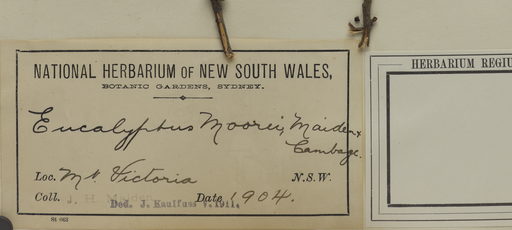 NATIONAL HERBARIUM OF NEW SOUTH WALES,
BOTANIC GARDENS, SYDNEY.
Eucalyptus Moorei, Maiden &
Cambage.
Loc. Mt Victoria N.S.W.
Coll. J. H. Maiden Date 1904.
Ded. J. Kaulfuss V. 1911.
St 063
HERBARIUM REGIU